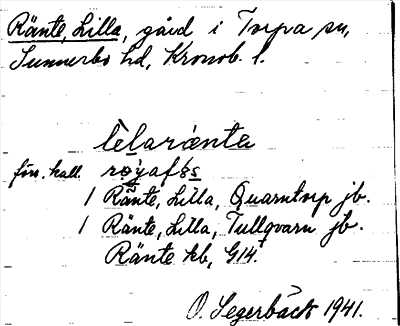 Ränte, Lilla, gård i Torpa sn,
Sunnerbo hd, Kronob. l.
lèlarænta
förr. kall. røyafəs
1 Ränte, Lilla, Quarntorp jb.
1 Ränte, Lilla, Tullqvarn jb.
Ränte kb, G14
O. Segerbäck 1941.